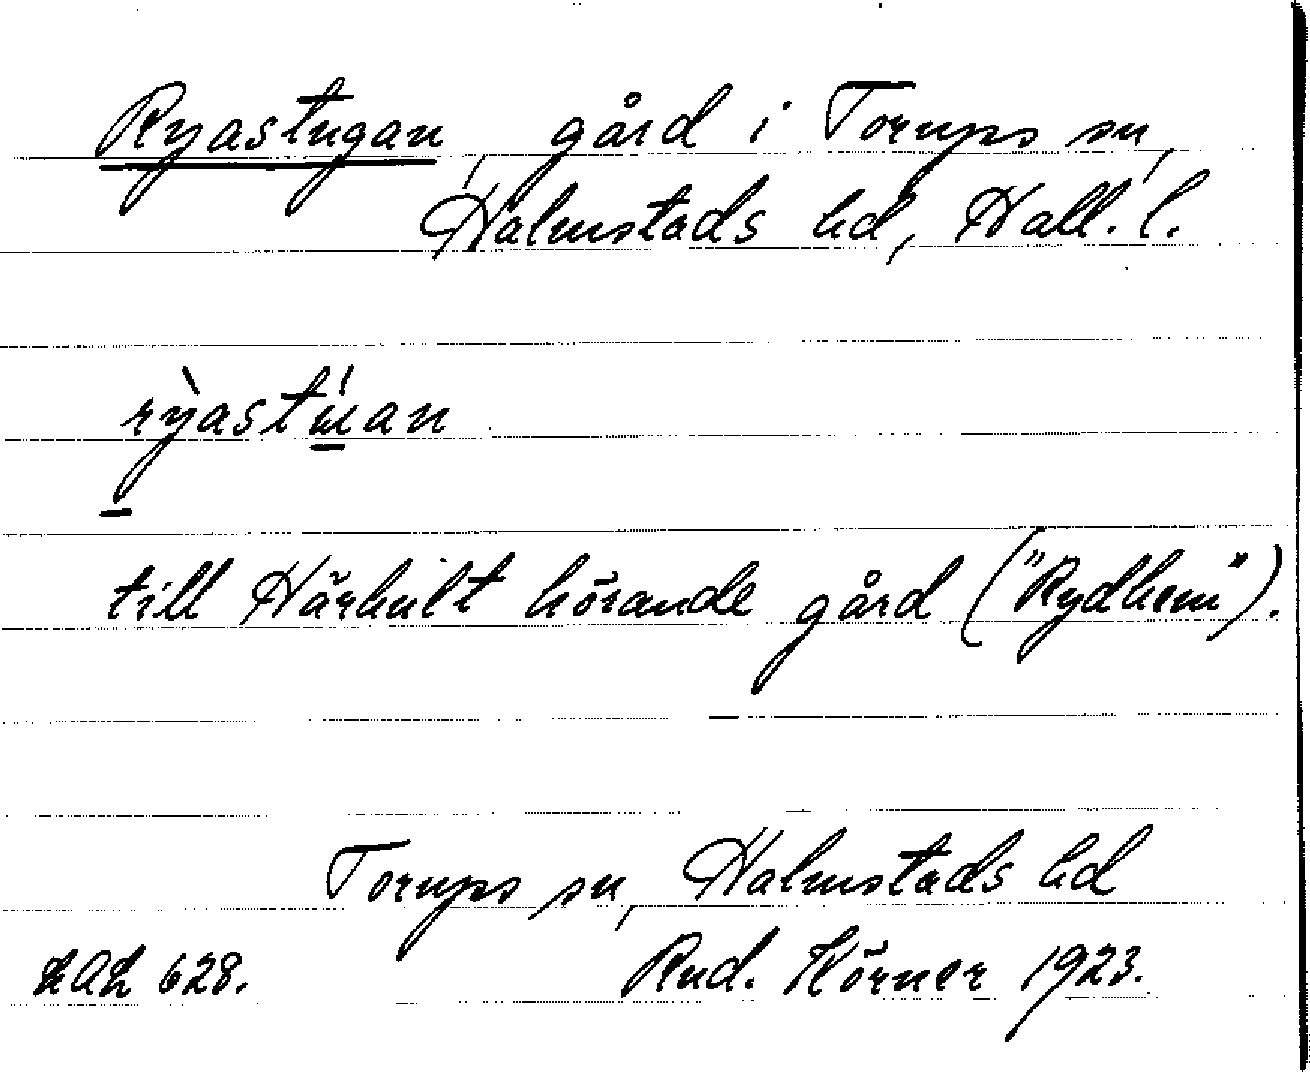 Ryastugan, gård i Torups sn,
Halmstads hd, Hall. l.
till Hårhult hörande gård ("Rydhem").
Torups sn, Halmstads hd
LAL 628. Rud. Körner 1923.